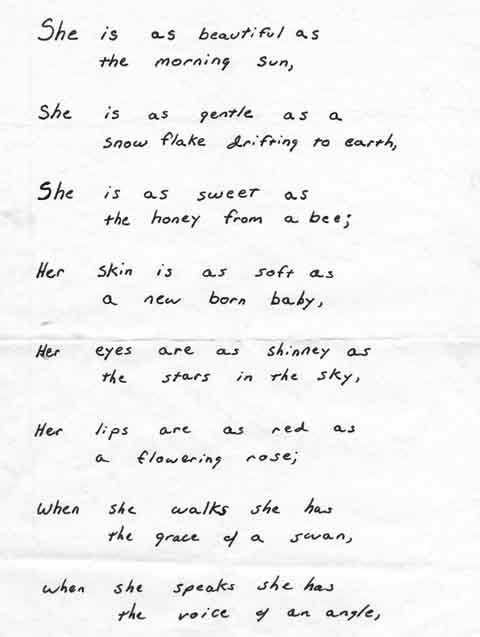 She is as beautiful as
the morning sun,
She is as gentle as a
snow flake drifting to earth,
She is as sweet as
the honey from a bee;
Her skin is as soft as
a new born baby,
Her eyes are as shinney as
the stars in the sky,
Her lips are as red as
a flowering rose;
When she walks she has
the grace of a swan,
when she speaks she has
the voice of an angle,